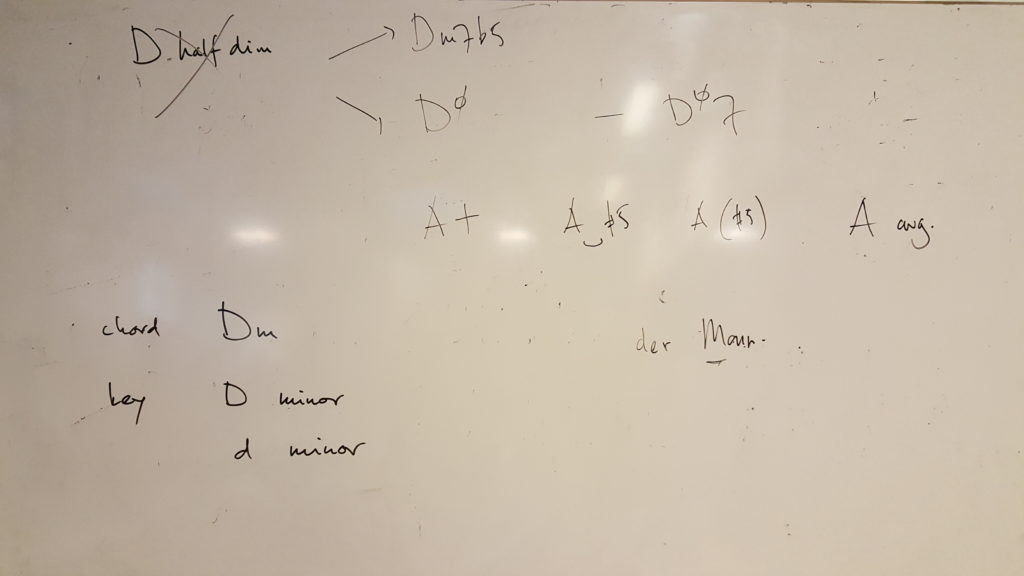 D half dim → Dm7b5
↘ DØ — DØ7
A+ A #5 A (#5) A aug.
chord Dm
der Mann.
key D minor
d minor